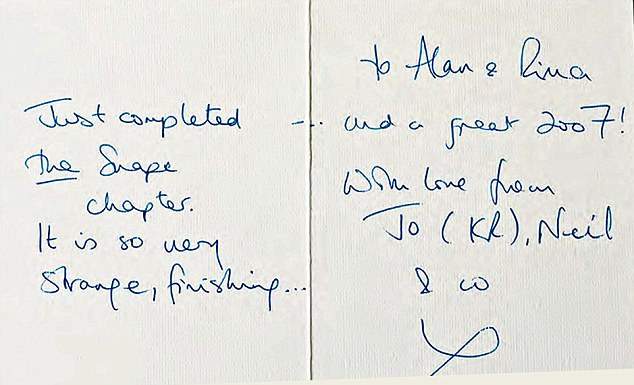 Just completed
the Snape
chapter.
It is so very
strange, finishing...
to Alan & Rima
... and a great 2007!
With love from
Jo (KR), Neil
& co